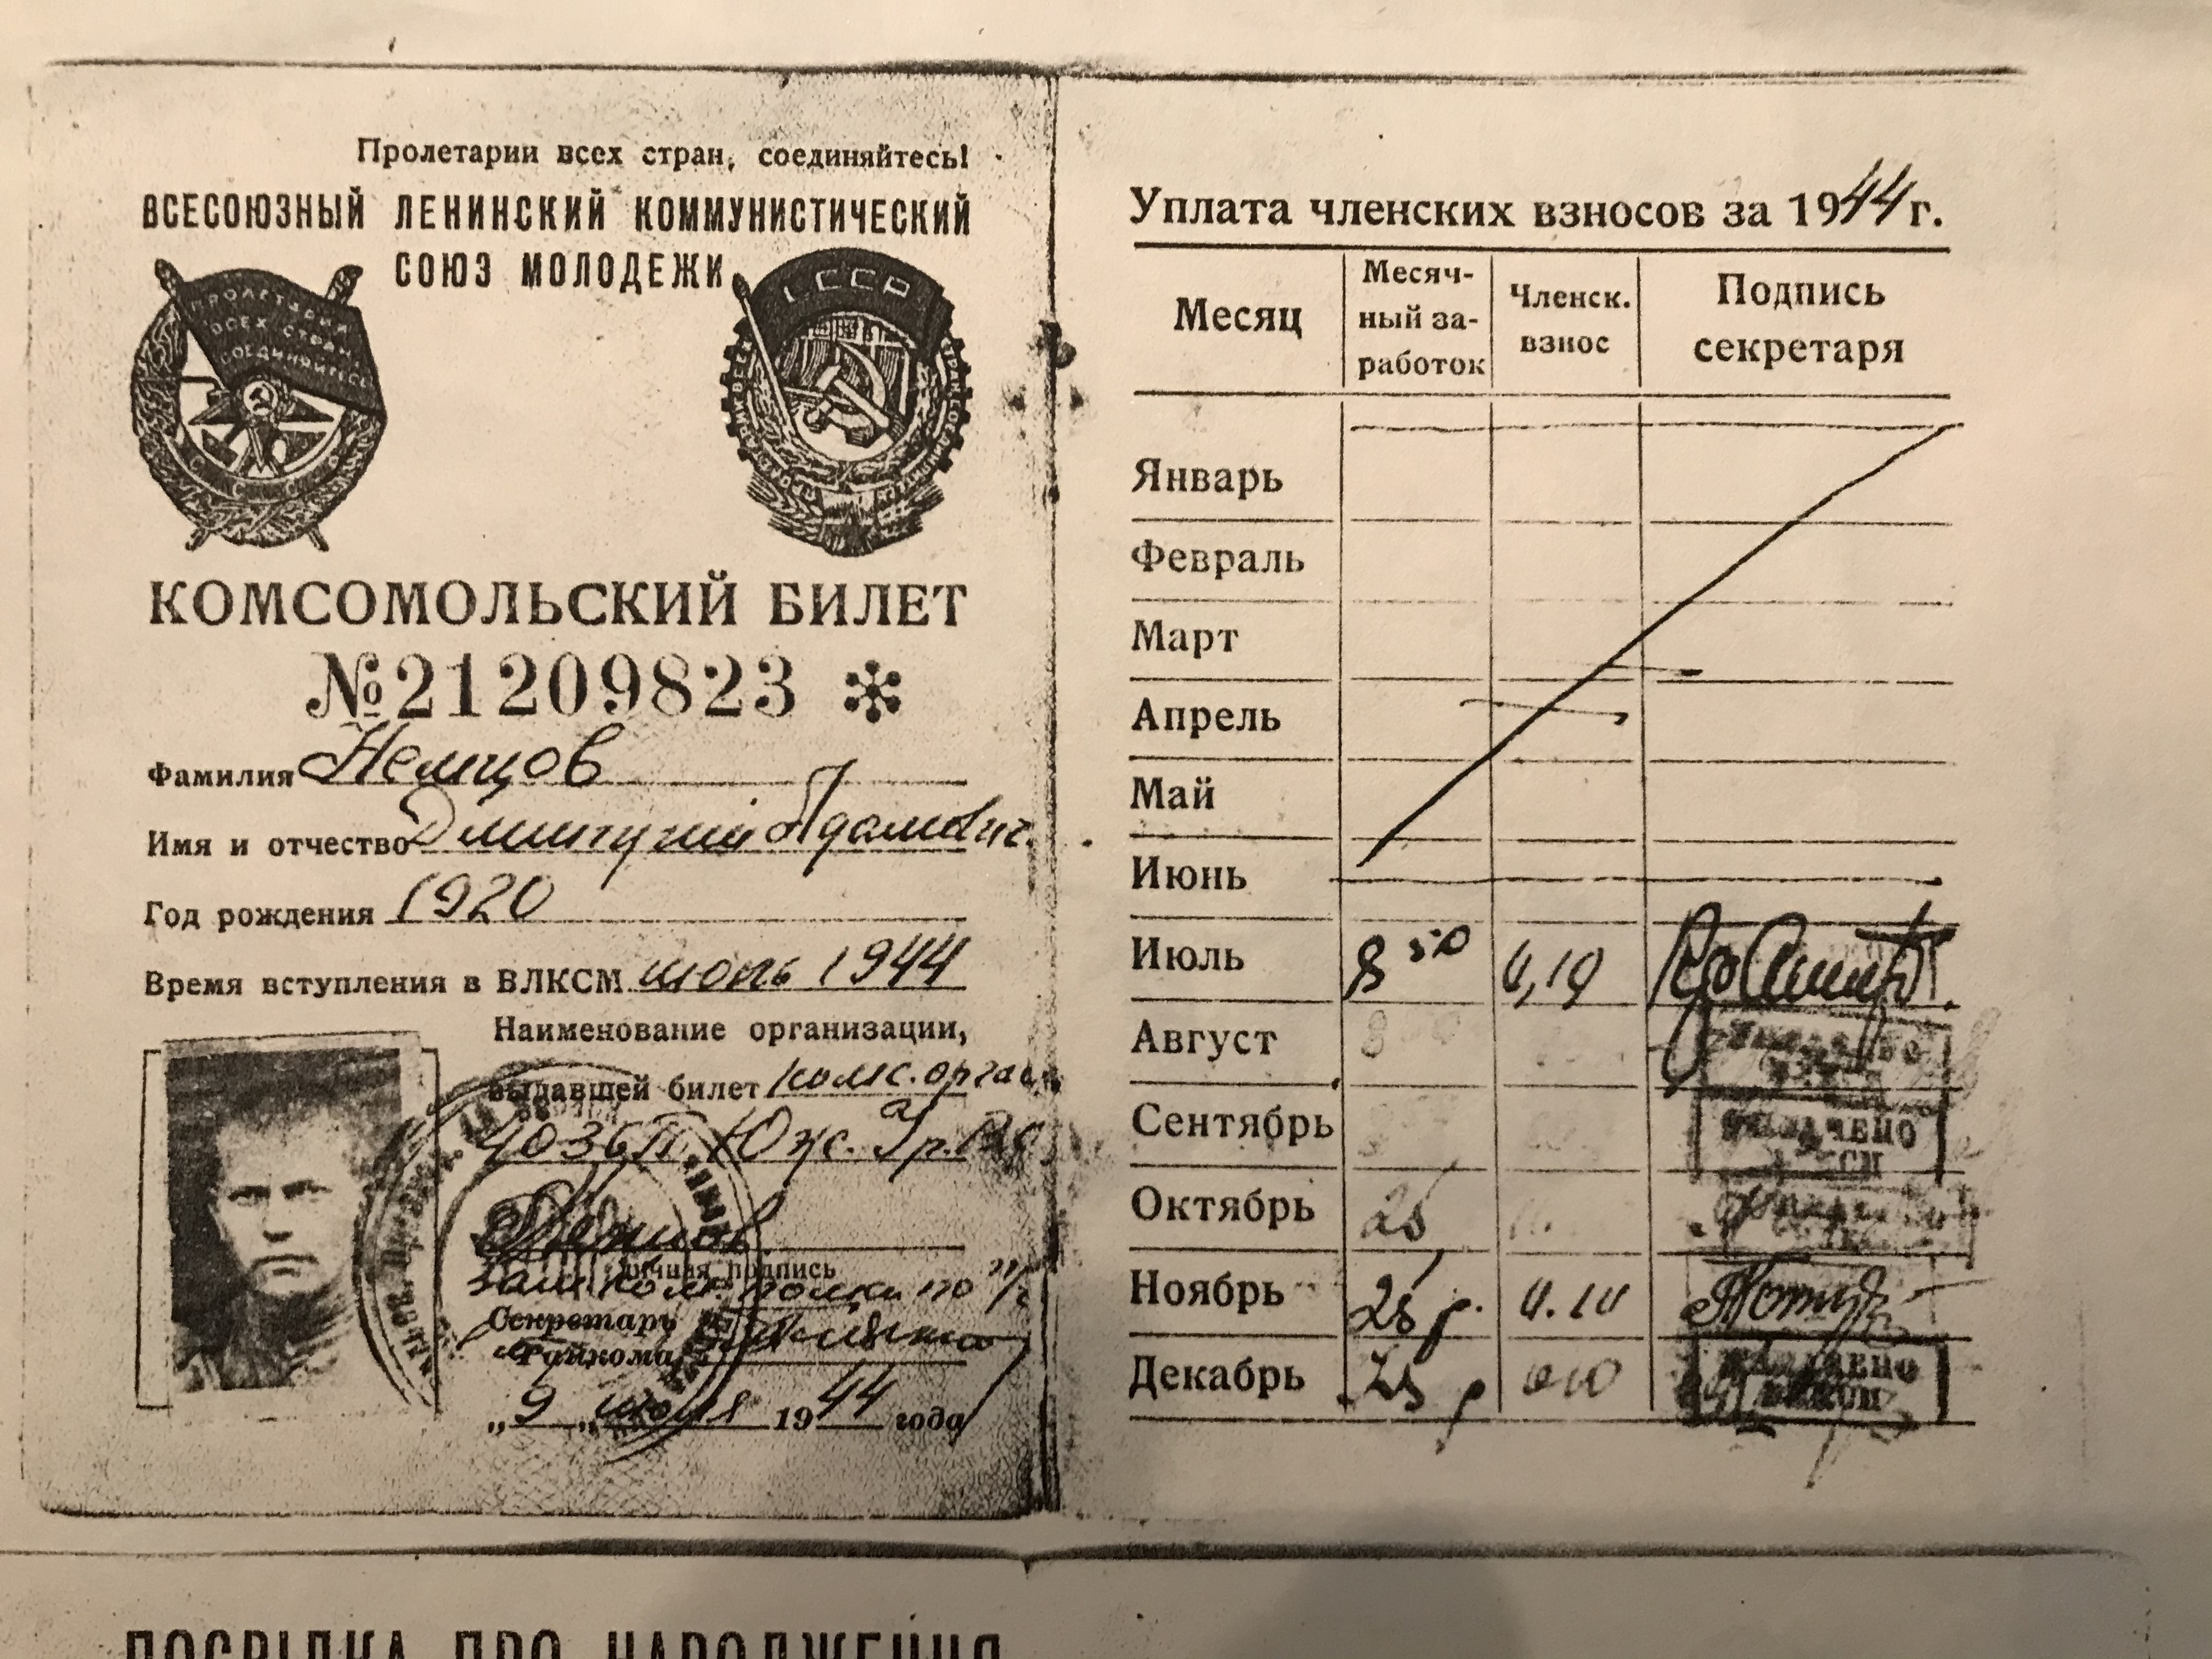 Пролетарии всех стран, соединяйтесь!
ВСЕСОЮЗНЫЙ ЛЕНИНСКИЙ КОММУНИСТИЧЕСКИЙ
СОЮЗ МОЛОДЕЖИ
ПРОЛЕТАРИИ
ВСЕХ СТРАН
СОЕДИНЯЙТЕСЬ
СССР
КОМСОМОЛЬСКИЙ БИЛЕТ
№21209823
Фамилия Немцов
Имя и отчество Дмитрий Адамович.
Год рождения 1920
Время вступления в ВЛКСМ июль 1944
Наименование организации,
выдавшей билет комс. орган
4036 Юж. Ур.
Немцов
личная подпись
Зам. ком. полка по п/ч
Секретарь
Райкома
„9„ июля 1944 года
Уплата членских взносов за 1944 г.
Месяц
Месяч-
ный за-
работок
Членск.
взнос
Подпись
секретаря
Январь
Февраль
Март
Апрель
Май
Июнь
Июль 8 50
Август
Сентябрь УПЛАЧЕНО
Октябрь 25
Ноябрь 25 р.
Декабрь 25 р УПЛАЧЕНО
ПОСВІДКА ПРО НАРОДЖЕННЯ